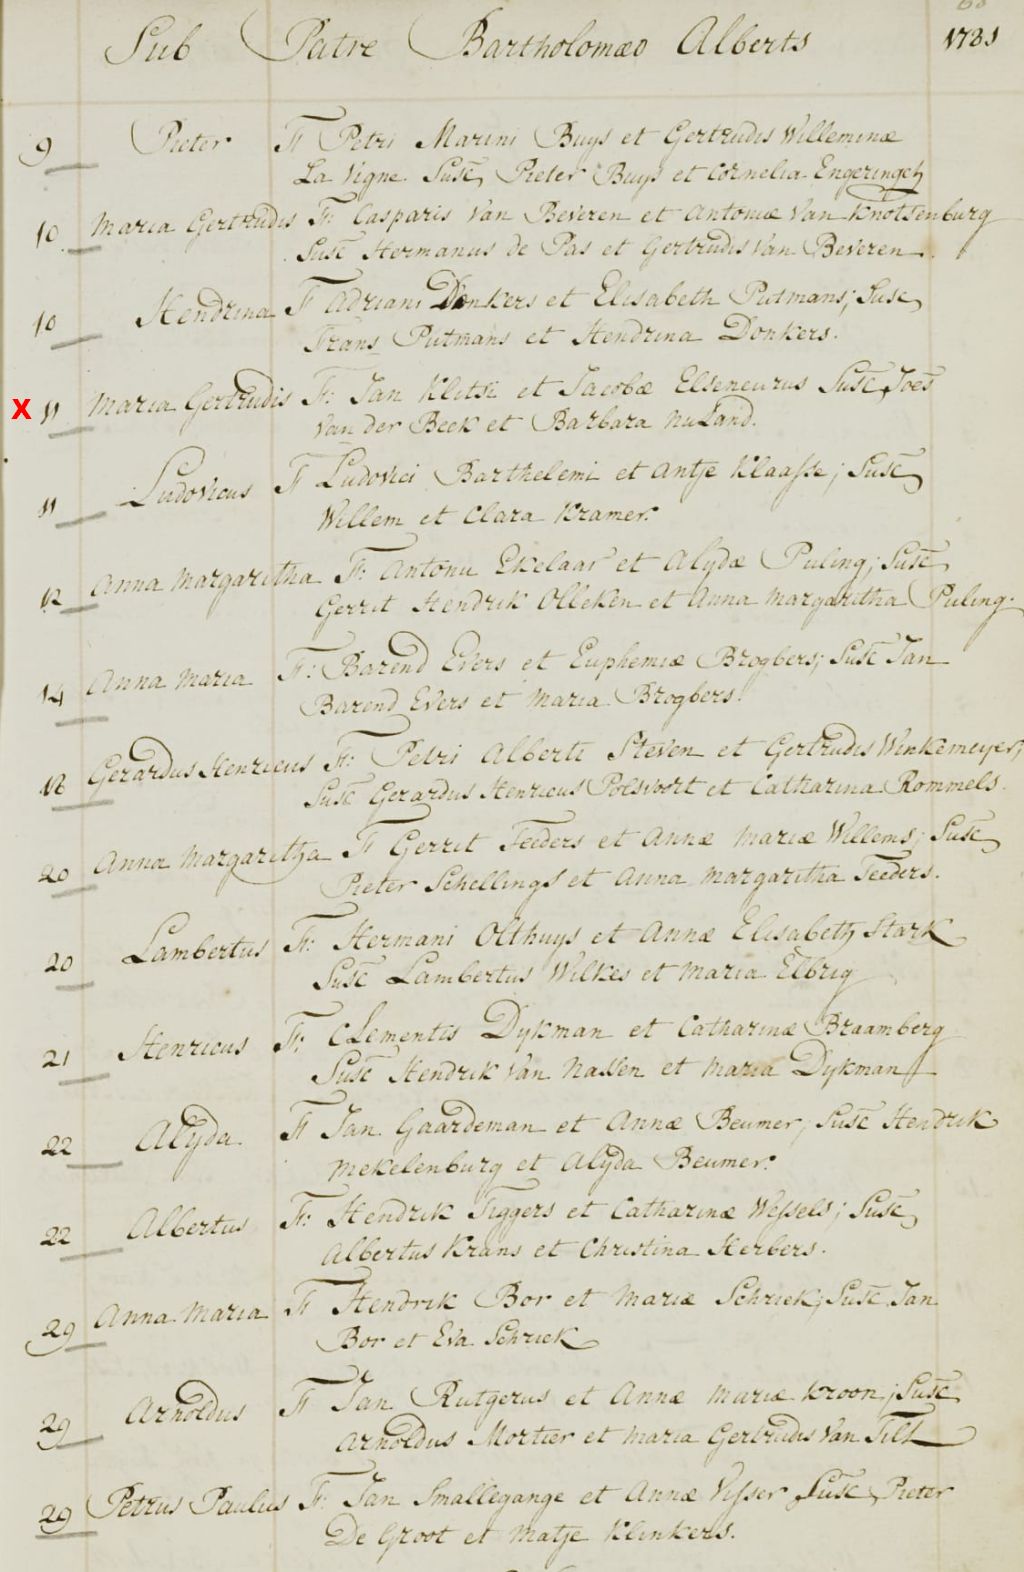 Sub Patre Bartholomæo Alberts 1781
9 Pieter F Petri Marini Buys et Gertrudis Willeminæ
La Vigne. Susc Pieter Buys et Cornelia Engeringh
10 Maria Gertrudis F: Casparis Van Beveren et Antoniæ Van Knotsenburg
Susc Hermanus de Pas et Gertrudis Van Beveren.
10 Hendrina F Adriani Donkers et Elisabeth Putmans; Susc
Frans Putmans et Hendrina Donkers.
X 11 Maria Gertrudis F: Jan Kletsi et Jacobæ Elseneurus Susc Joes
Van der Beek et Barbara Nuland.
11 Ludovicus F Ludovici Barthelemi et Antje Klaasse; Susc
Willem et Clara Kramer.
12 Anna Margaritha F: Antonii Ekelaar et Alydæ Puling; Susc
Gerrit Hendrik Olleken et Anna Margaritha Puling.
14 Anna Maria F: Barend Evers et Euphemiæ Brogbers; Susc Jan
Barend Evers et Maria Brogbers.
18 Gerardus Henricus F: Petri Alberti Steven et Gertrudis Winkemeyer;
Susc Gerardus Henricus Polsvoort et Catharina Rommels.
20 Anna Margaritha F Gerrit Feeders et Annæ Mariæ Willems; Susc
Pieter Schellings et Anna Margaritha Feeders.
20 Lambertus F: Hermani Olthuys et Annæ Elisabeth Stark
Susc Lambertus Wilkes et Maria Elbrig
21 Henricus F: Clementis Dykman et Catharinæ Braamberg
Susc Hendrik Van Nassen et Maria Dykman
22 Alyda F Jan Gaardeman et Annæ Beumer; Susc Hendrik
Mekelenburg et Alyda Beumer.
22 Albertus F: Hendrik Figgers et Catharinæ Wessels; Susc
Albertus Krans et Christina Herbers.
29 Anna Maria F Hendrik Bor et Mariæ Schriek; Susc Jan
Bor et Eva Schriek
29 Arnoldus F Jan Rutgerus et Annæ Mariæ Kroon; Susc
Arnoldus Mortier et Maria Gertrudis Van Tilt
29 Petrus Paulus F: Jan Smallegange et Annæ Visser Susc Pieter
De Groot et Matje Klinkers.